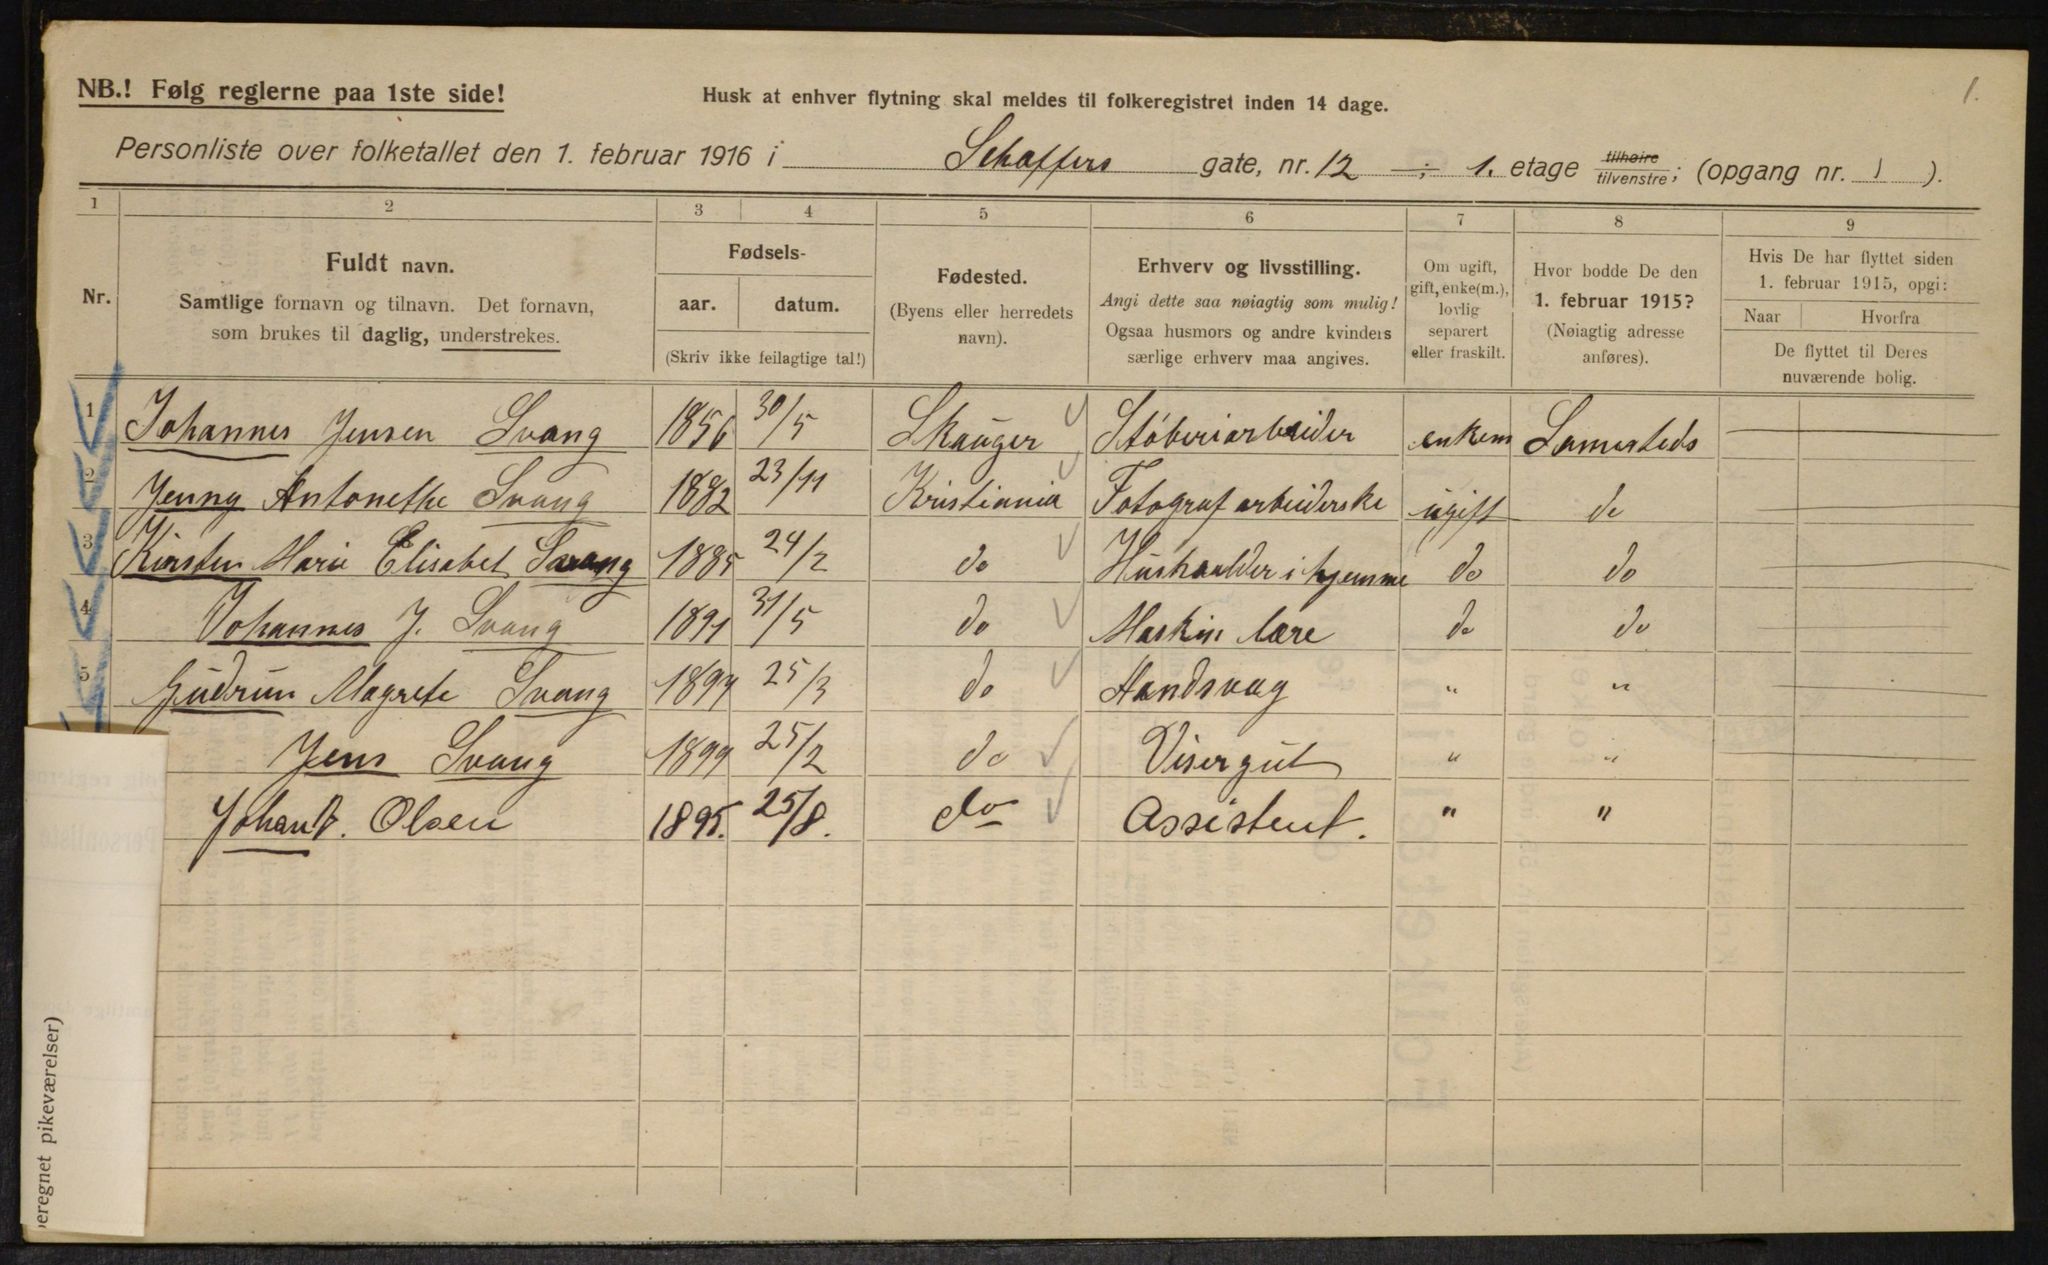 NB.! Følg reglerne paa 1ste side!
Husk at enhver flytning skal meldes til folkeregistret inden 14 dage.
1.
Personliste over folketallet den 1. februar 1916 i Schaffers gate, nr. 12 ; 1. etage tilhøire tilvenstre; (opgang nr. 1 ).
1 2 3 4 5 6 7 8 9
Nr.
Fuldt navn.
Samtlige fornavn og tilnavn. Det fornavn,
som brukes til daglig, understrekes.
Fødsels-
aar. datum.
(Skriv ikke feilagtige tal!)
Fødested.
(Byens eller herredets
navn).
Erhverv og livsstilling.
Angi dette saa nøiagtig som mulig!
Ogsaa husmors og andre kvinders
særlige erhverv maa angives.
Om ugift,
gift, enke(m.),
lovlig
separert
eller fraskilt.
Hvor bodde De den
1. februar 1915?
(Nøiagtig adresse
anføres).
Hvis De har flyttet siden
1. februar 1915, opgi:
Naar Hvorfra
De flyttet til Deres
nuværende bolig.
1 Johannes Jensen Svang 1856 30/5 Skauger Støberiarbeider enkem Samesteds
2 Jenny Antonethe Svang 1882 23/11 Kristiania Fotografarbeiderske ugift do
3 Kirsten Marie Elisabet Svang 1885 24/2 do Hushaalder i hjemme do do
4 Johannes J. Svang 1891 31/5 do Maskin lære do do
5 Gudrun Magrete Svang 1894 25/3 do Handsvag " "
Jens Svang 1899 25/2 do Visergut " "
Johan Olsen 1895. 25/8. do Assistent. " "
beregnet pikeværelser)